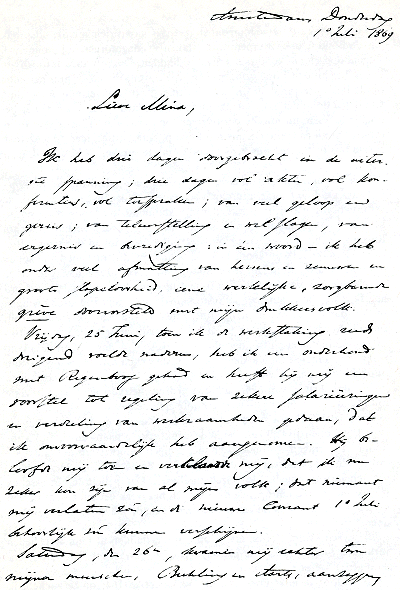 Amsterdam Donderdag
1° Juli 1869
Lieve Mina,
Ik heb drie dagen doorgebracht in de uiter-
ste spanning; drie dagen vol akten, vol kon-
ferenties, vol toespraken; van veel geloop en
gereis; van teleurstelling en welslagen, van
ergernis en bevrediging: in één woord – ik heb
onder veel afmatting van hersens en zenuwen en
groote slapeloosheid, eene werkelijke, zorgbarende
grève doorworsteld met mijn drukkersvolk.
Vrijdag, 25 Juni, toen ik de werkstaking reeds
dreigend voelde naderen, heb ik een onderhoud
met Regenboog gehad en heeft hij mij een
voorstel tot regeling van zekere salariëeringen
en verdeeling van werkzaamheden gedaan, dat
ik onvoorwaardelijk heb aangenomen. Hij be-
loofde mij toen en verklaarde mij, dat ik nu
zeker kon zijn van al mijn volk; dat niemant
mij verlaten zou, en de nieuwe Courant 1° Juli
behoorlijk zou kunnen verschijnen.
Saturdag, den 26n, kwamen mij echter twee
mijner menschen, en